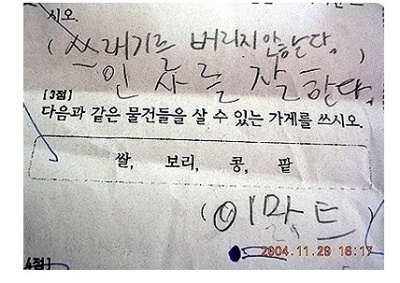 시오.
(쓰래기를 버리지 안한다.
인사를 잘 한다.
[3점]
다음과 같은 물건들을 살 수 있는 가게를 쓰시오.
쌀, 보리, 콩, 팥
(이마트)
4점]
2004.11.29 16:17